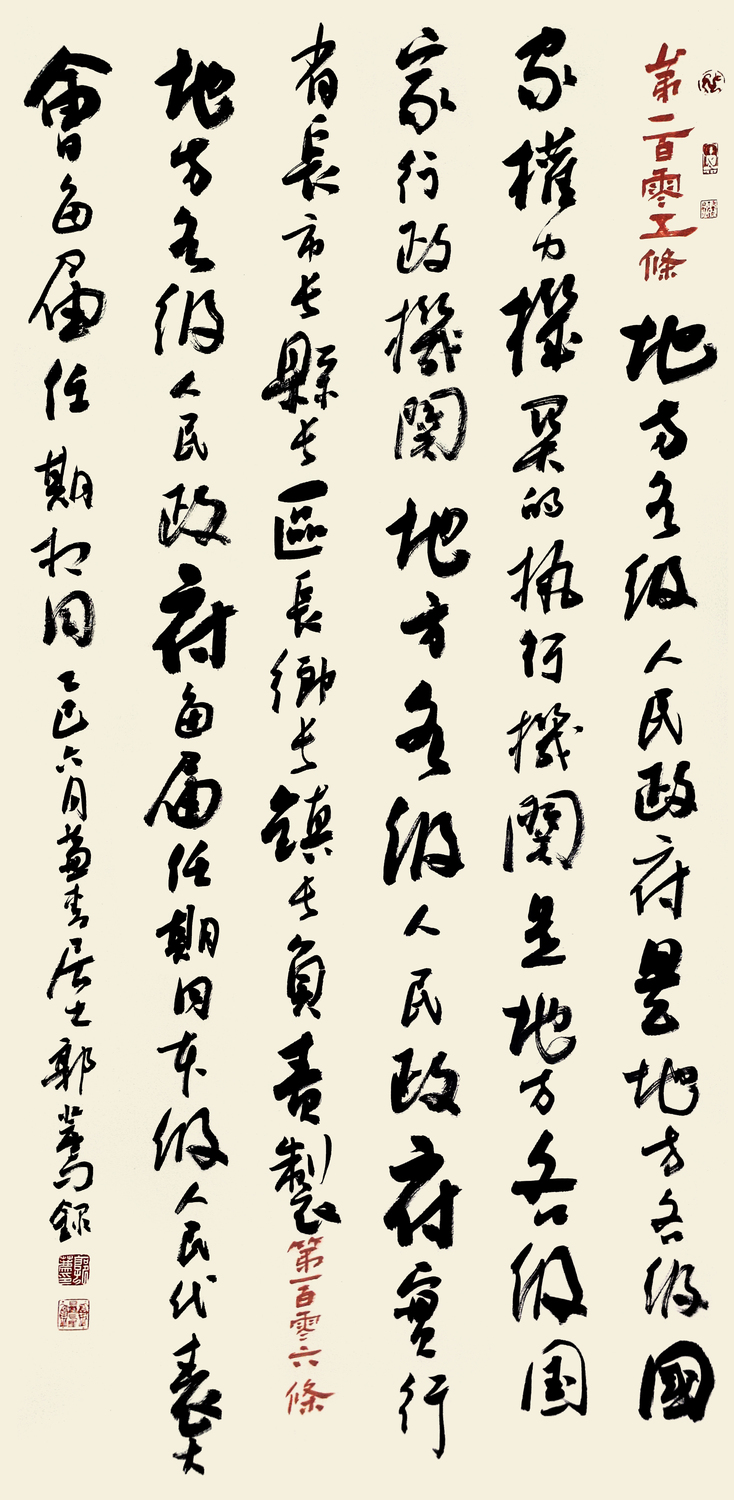 第一百零五條地方各级人民政府是地方各级國
家權力機关的執行機關是地方各级国
家行政機關地方各级人民政府實行
省長市长縣长區長鄉长鎮长負責製第一百零六條
地方各级人民政府每届任期同本级人民代表大
會每届任期相同乙巳六月居士郭錄